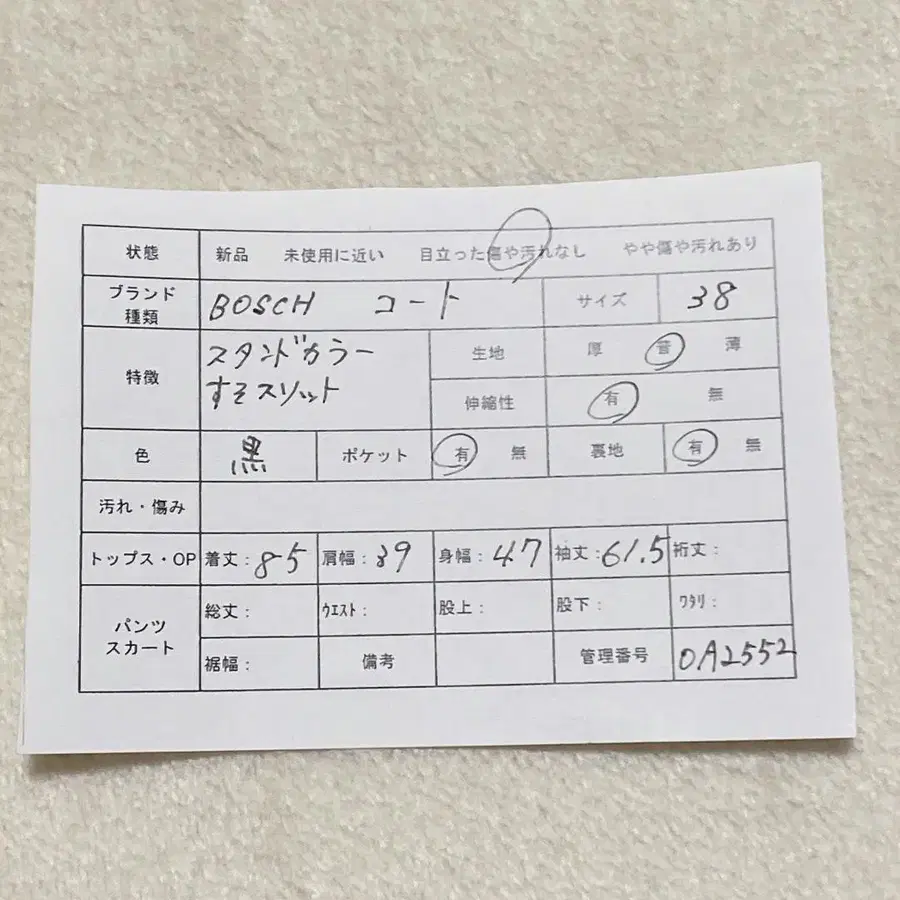 状態 新品 未使用に近い 目立った傷や汚れなし やや傷や汚れあり
ブランド
種類 BOSCH コート サイズ 38
特徴 スタンドカラー
すそスリット
生地 厚 普 薄
伸縮性 有 無
色 黒 ポケット 有 無 裏地 有 無
汚れ・傷み
トップス・OP 着丈:85 肩幅:39 身幅:47 袖丈:61.5 裄丈:
パンツ
スカート
総丈: ウエスト: 股上: 股下: ワタリ:
裾幅: 備考 管理番号 OA2552